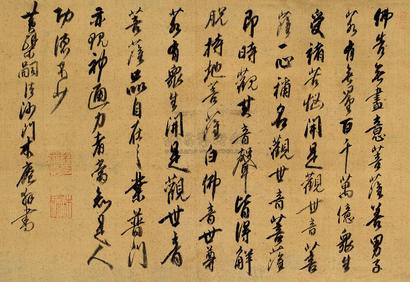 佛告無盡意菩薩善男子
若有無量百千萬億眾生
受諸苦惱聞是觀世音菩
薩一心稱名觀世音菩薩
即時觀其音聲皆得解
脫持地菩薩白佛言世尊
若有眾生聞是觀世音
菩薩品自在之業普門
示現神通力者當知是人
功德不少
黃檗嗣法沙門木庵書